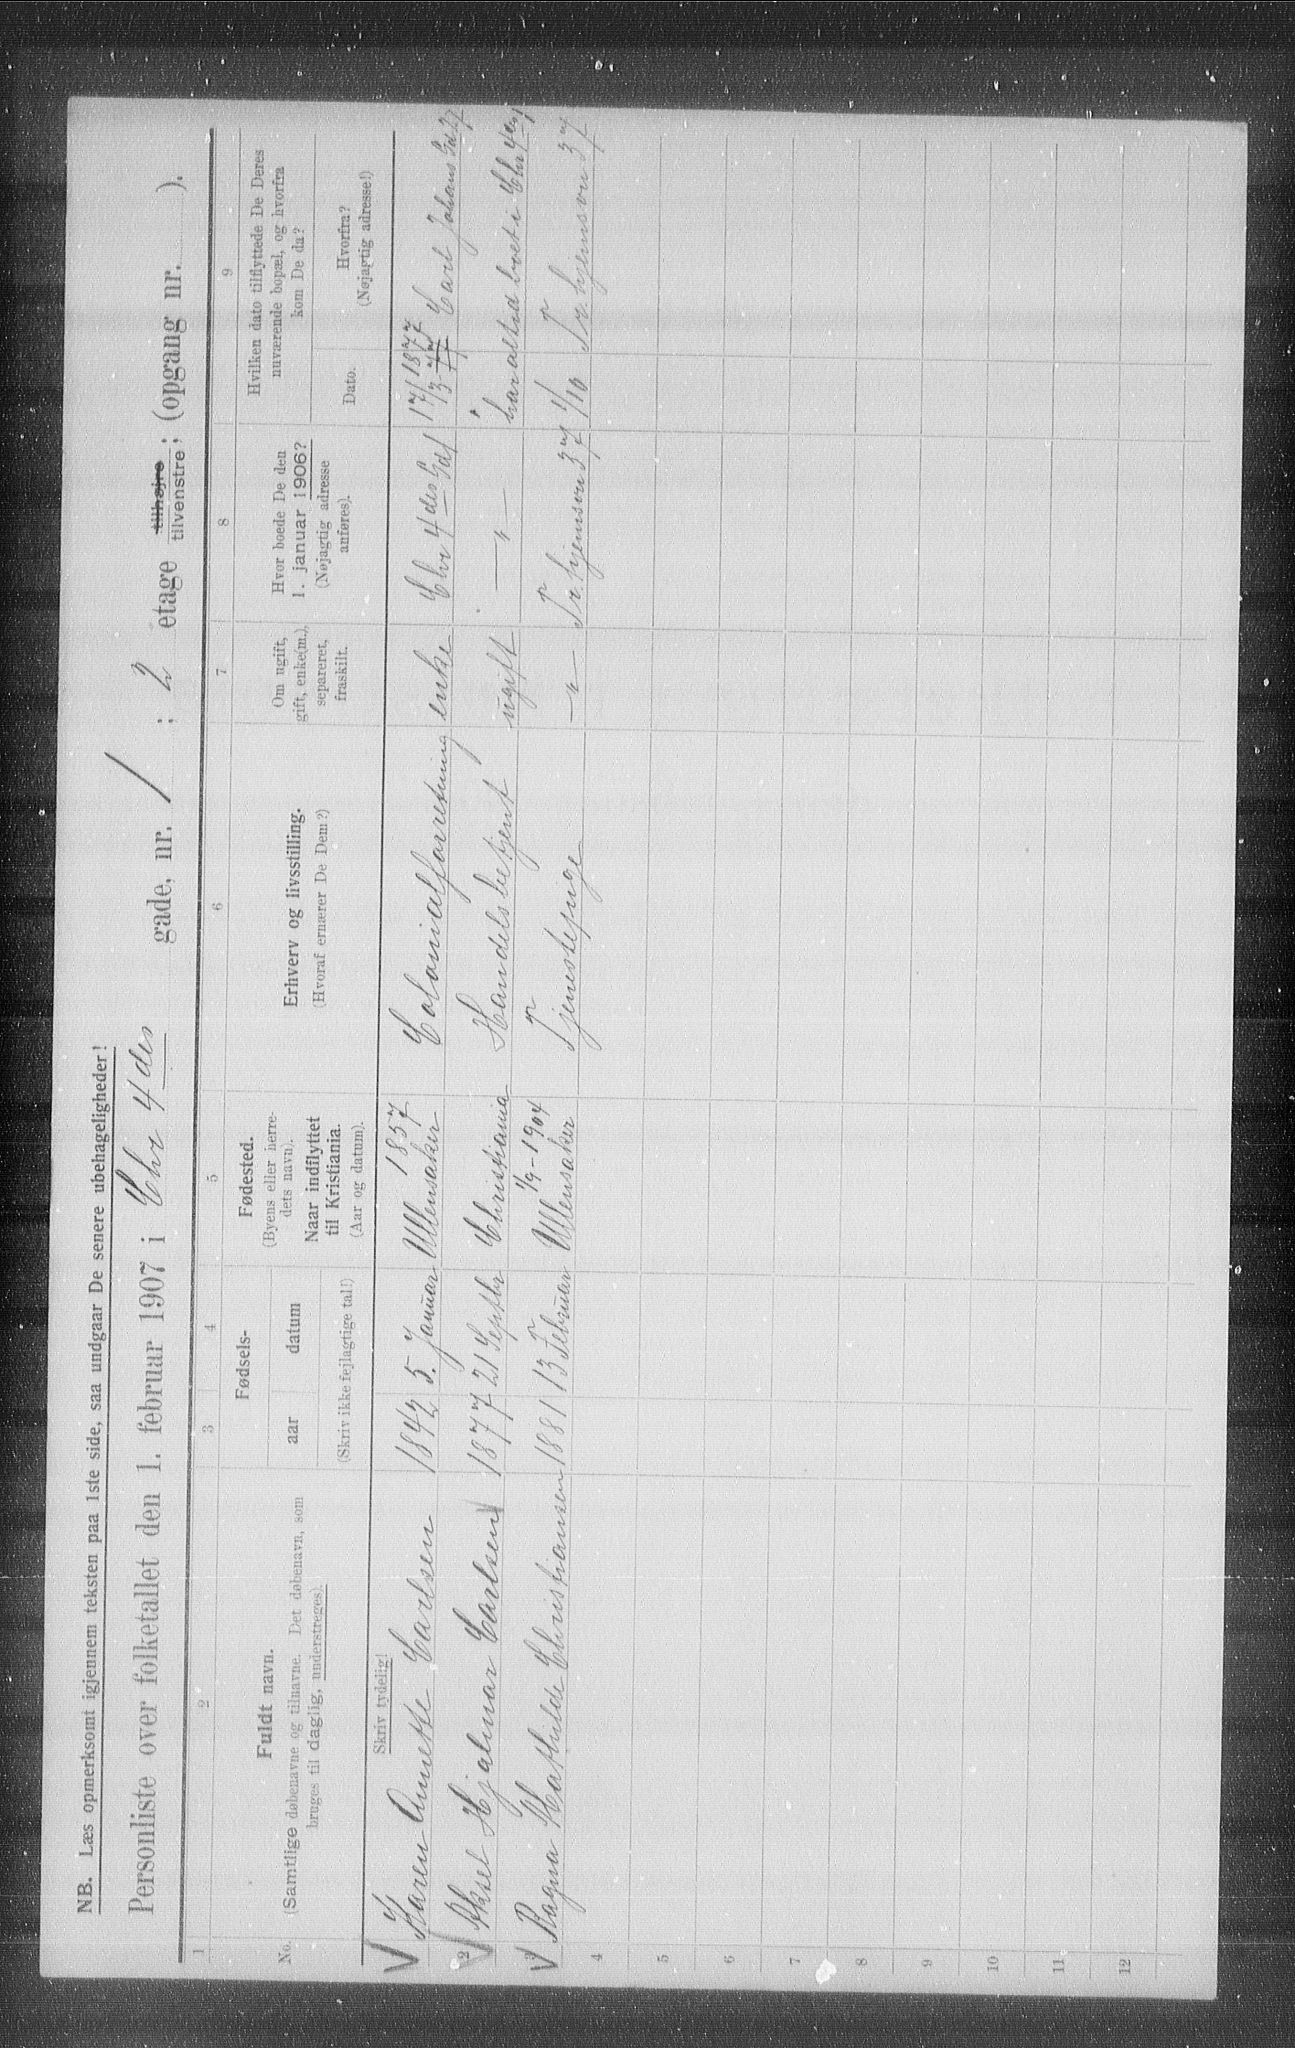 NB. Læs opmerksomt igjennem teksten paa 1ste side, saa undgaar De senere ubehageligheder!
Personliste over folketallet den 1. februar 1907 i Chr 4des gade, nr. 1; 2 etage tilhøjre tilvenstre; (opgang nr. ).
1 2 3 4 5 6 7 8 9
No.
Fuldt navn.
(Samtlige døbenavne og tilnavne. Det døbenavn, som
bruges til daglig, understreges).
Skriv tydelig!
Fødsels-
aar datum
(Skriv ikke fejlagtige tal!)
Fødested.
(Byens eller herre-
dets navn).
Naar indflyttet
til Kristiania.
(Aar og datum).
Erhverv og livsstilling.
(Hvoraf ernærer De Dem?)
Om ugift,
gift, enke(m.),
separeret,
fraskilt.
Hvor boede De den
1. januar 1906?
(Nøjagtig adresse
anføres).
Hvilken dato tilflyttede De Deres
nuværende bopæl, og hvorfra
kom De da?
Dato.
Hvorfra?
(Nøjagtig adresse!)
Karen Annette Carlsen 1842 5. Januar 1857 Ullensaker Colonialforretning enke Chr 4des Gd 1 17/3 1877 Carl Johans Gd 27
2 Aksel Hjalmar Carlsen 1877 21 Septbr Christiania Handelsbetjent ugift — " — har altid boet i Chr 4des
3 Ragna Mathilde Christiansen 1881 13 Februar 1/9-1904 Ullensaker Tjenestepige — " — 1/10
4
5
6
7
8
9
10
11
12